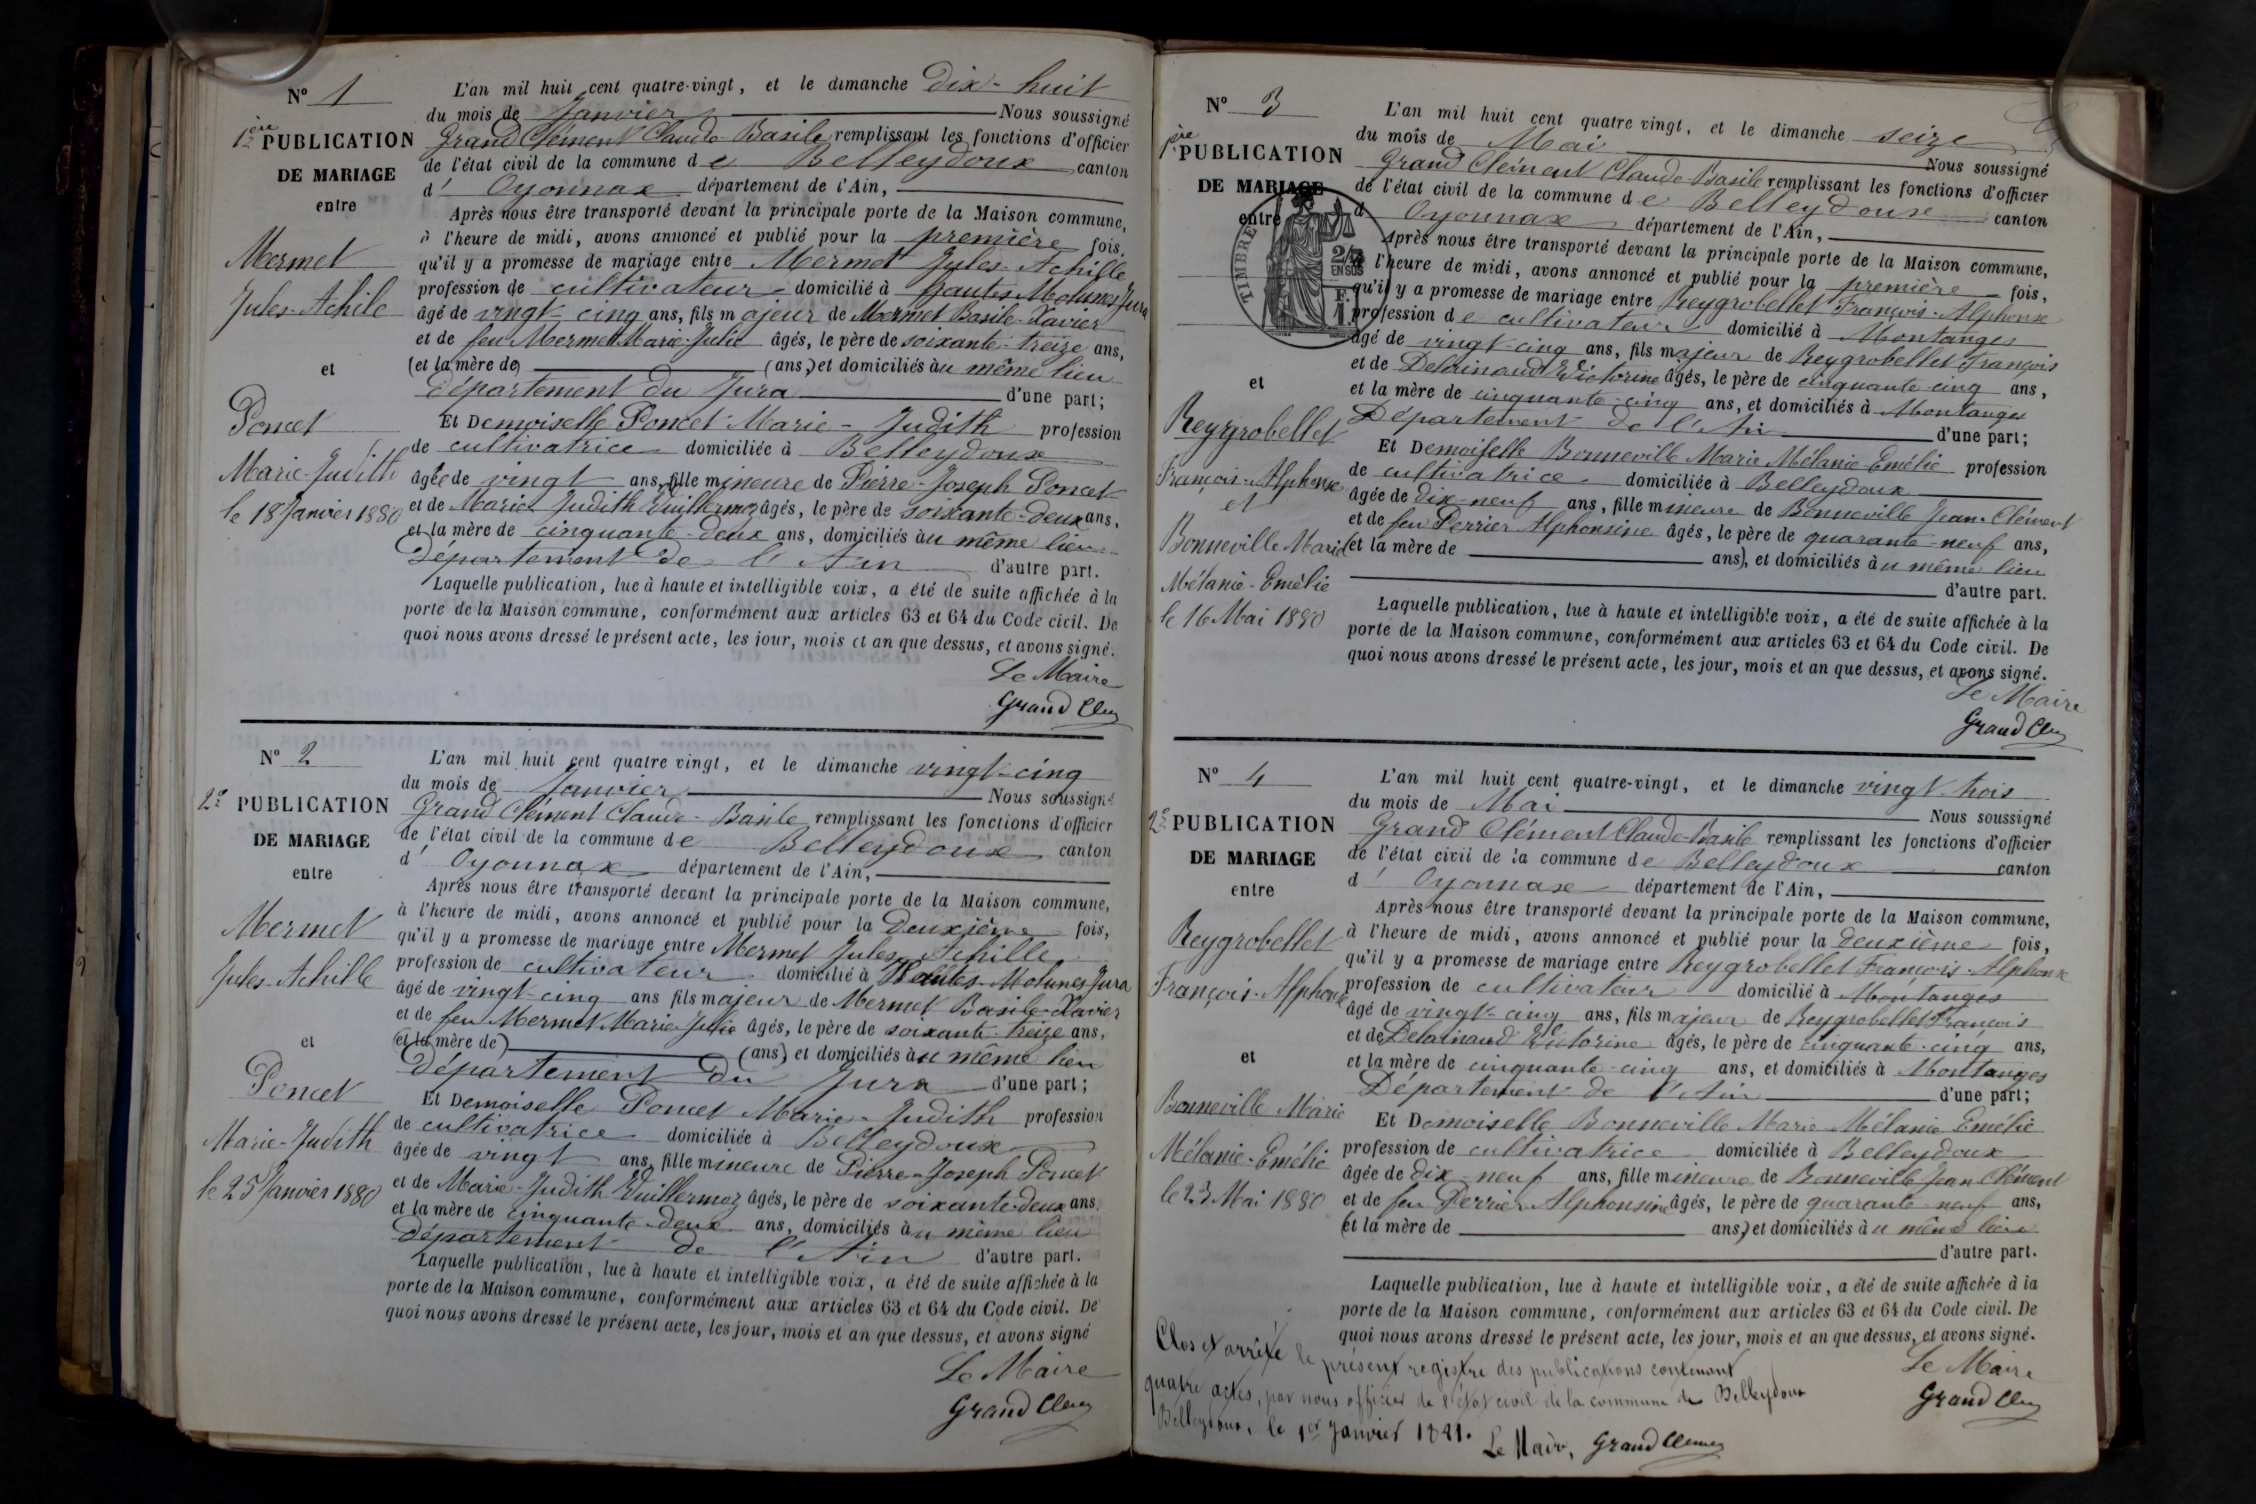 N° 1
1ère PUBLICATION
DE MARIAGE
entre
Mermet
Jules-Achile
et
Poncet
Marie-Judith
le 18 Janvier 1880
L'an mil huit cent quatre-vingt, et le dimanche Dix-huit
du mois de Janvier Nous soussigné
Grand Clément Claude-Basile remplissant les fonctions d'officier
de l'état civil de la commune de Belleydoux canton
d' Oyonnax département de l'Ain,
Après nous être transporté devant la principale porte de la Maison commune,
à l'heure de midi, avons annoncé et publié pour la première fois,
qu'il y a promesse de mariage entre Mermet Jules-Achille
profession de cultivateur domicilié à hautes Molunes Jura
âgé de vingt-cinq ans, fils majeur de Mermet Basile-Xavier
et de feu Mermet Marie-Julie âgés, le père de soixante-treize ans,
(et la mère de) (ans,) et domiciliés au même lieu
Département du Jura d'une part;
Et Demoiselle Poncet Marie-Judith profession
de cultivatrice domiciliée à Belleydoux
âgée de vingt ans, fille mineure de Pierre-Joseph Poncet
et de Marie-Judith Vuillermoz âgés, le père de soixante-deux ans,
et la mère de cinquante-deux ans, domiciliés au même lieu
Département de l'Ain d'autre part.
Laquelle publication, lue à haute et intelligible voix, a été de suite affichée à la
porte de la Maison commune, conformément aux articles 63 et 64 du Code civil. De
quoi nous avons dressé le présent acte, les jour, mois et an que dessus, et avons signé.
Le Maire
Grand Clem
N° 2
2e PUBLICATION
DE MARIAGE
entre
Mermet
Jules-Achille
et
Poncet
Marie-Judith
le 25 Janvier 1880
L'an mil huit cent quatre vingt, et le dimanche vingt-cinq
du mois de Janvier Nous soussigné
Grand Clément Claude-Basile remplissant les fonctions d'officier
de l'état civil de la commune de Belleydoux canton
d' Oyonnax département de l'Ain,
Après nous être transporté devant la principale porte de la Maison commune,
à l'heure de midi, avons annoncé et publié pour la Deuxième fois,
qu'il y a promesse de mariage entre Mermet Jules-Achille
profession de cultivateur domicilié à Hautes-Molunes Jura
âgé de vingt-cinq ans fils majeur de Mermet Basile-Xavier
et de feu Mermet Marie-Julie âgés, le père de soixante-treize ans,
(et la mère de) (ans) et domiciliés au même lieu
Département du Jura d'une part;
Et Demoiselle Poncet Marie-Judith profession
de cultivatrice domiciliée à Belleydoux
âgée de vingt ans, fille mineure de Pierre-Joseph Poncet
et de Marie-Judith Vuillermoz âgés, le père de soixante-deux ans
et la mère de cinquante-deux ans, domiciliés au même lieu
Département de l'Ain d'autre part.
Laquelle publication, lue à haute et intelligible voix, a été de suite affichée à la
porte de la Maison commune, conformément aux articles 63 et 64 du Code civil. De
quoi nous avons dressé le présent acte, les jour, mois et an que dessus, et avons signé
Le Maire
Grand Clem
N° 3
1ère PUBLICATION
DE MARIAGE
entre
TIMBRE
2/10
EN SUS
F.
1
et
Reygrobellet
François-Alphonse
et
Bonneville Marie
Mélanie-Emélie
le 16 Mai 1880
L'an mil huit cent quatre vingt, et le dimanche seize
du mois de Mai Nous soussigné
Grand Clément Claude-Basile remplissant les fonctions d'officier
de l'état civil de la commune de Belleydoux canton
d Oyonnax département de l'Ain,
Après nous être transporté devant la principale porte de la Maison commune,
à l'heure de midi, avons annoncé et publié pour la première fois,
qu'il y a promesse de mariage entre Reygrobellet François-Alphonse
profession de cultivateur domicilié à Montanges
âgé de vingt-cinq ans, fils majeur de Reygrobellet François
et de Delainaud Victorine âgés, le père de cinquante-cinq ans,
et la mère de cinquante-cinq ans, et domiciliés à Montanges
Département de l'Ain d'une part;
Et Demoiselle Bonneville Marie Mélanie Emélie profession
de cultivatrice domiciliée à Belleydoux
âgée de dix-neuf ans, fille mineure de Bonneville Jean-Clément
et de feu Perrier Alphonsine âgés, le père de quarante-neuf ans,
(et la mère de ans), et domiciliés au même lieu
d'autre part.
Laquelle publication, lue à haute et intelligible voix, a été de suite affichée à la
porte de la Maison commune, conformément aux articles 63 et 64 du Code civil. De
quoi nous avons dressé le présent acte, les jour, mois et an que dessus, et avons signé.
Le Maire
Grand Clem
N° 4
2e PUBLICATION
DE MARIAGE
entre
Reygrobellet
François-Alphonse
et
Bonneville Marie
Mélanie-Emélie
le 23 Mai 1880
L'an mil huit cent quatre-vingt, et le dimanche vingt trois
du mois de Mai Nous soussigné
Grand Clément Claude-Basile remplissant les fonctions d'officier
de l'état civil de la commune de Belleydoux canton
d' Oyonnax département de l'Ain,
Après nous être transporté devant la principale porte de la Maison commune,
à l'heure de midi, avons annoncé et publié pour la deuxième fois,
qu'il y a promesse de mariage entre Reygrobellet François-Alphonse
profession de cultivateur domicilié à Montanges
âgé de vingt-cinq ans, fils majeur de Reygrobellet François
et de Delainaud Victorine âgés, le père de cinquante-cinq ans,
et la mère de cinquante-cinq ans, et domiciliés à Montanges
Département de l'Ain d'une part;
Et Demoiselle Bonneville Marie Mélanie Emélie
profession de cultivatrice domiciliée à Belleydoux
âgée de dix-neuf ans, fille mineure de Bonneville Jean Clément
et de feu Perrier Alphonsine âgés, le père de quarante-neuf ans,
(et la mère de ans) et domiciliés au même lieu
d'autre part.
Laquelle publication, lue à haute et intelligible voix, a été de suite affichée à la
porte de la Maison commune, conformément aux articles 63 et 64 du Code civil. De
quoi nous avons dressé le présent acte, les jour, mois et an que dessus, et avons signé.
Le Maire
Grand Clem
Clos et arrêté le présent registre des publications contenant
quatre actes, par nous officier de l'état civil de la commune de Belleydoux
Belleydoux, le 1er Janvier 1881.
Le Maire, Grand Clement